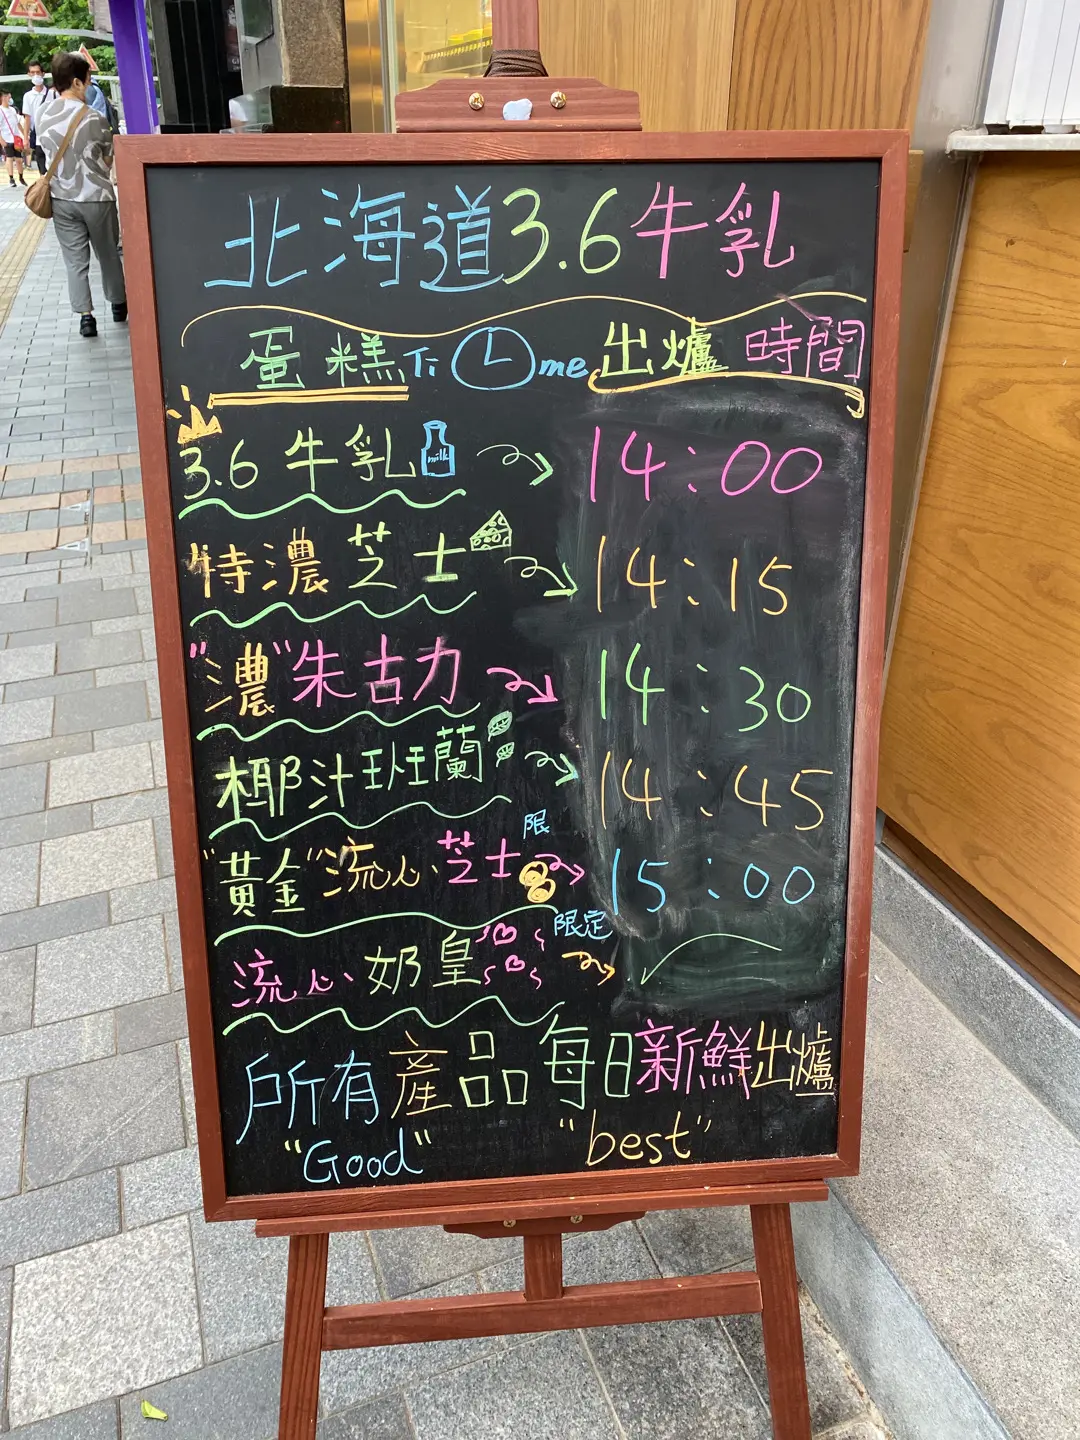 北海道3.6牛乳
蛋糕 Time 出爐 時間
3.6 牛乳 milk 14:00
特濃芝士 14:15
"濃"朱古力 14:30
椰汁班蘭 14:45
"黃金"流心芝士 限 15:00
流心奶皇 限定
所有產品每日新鮮出爐
"Good" "best"